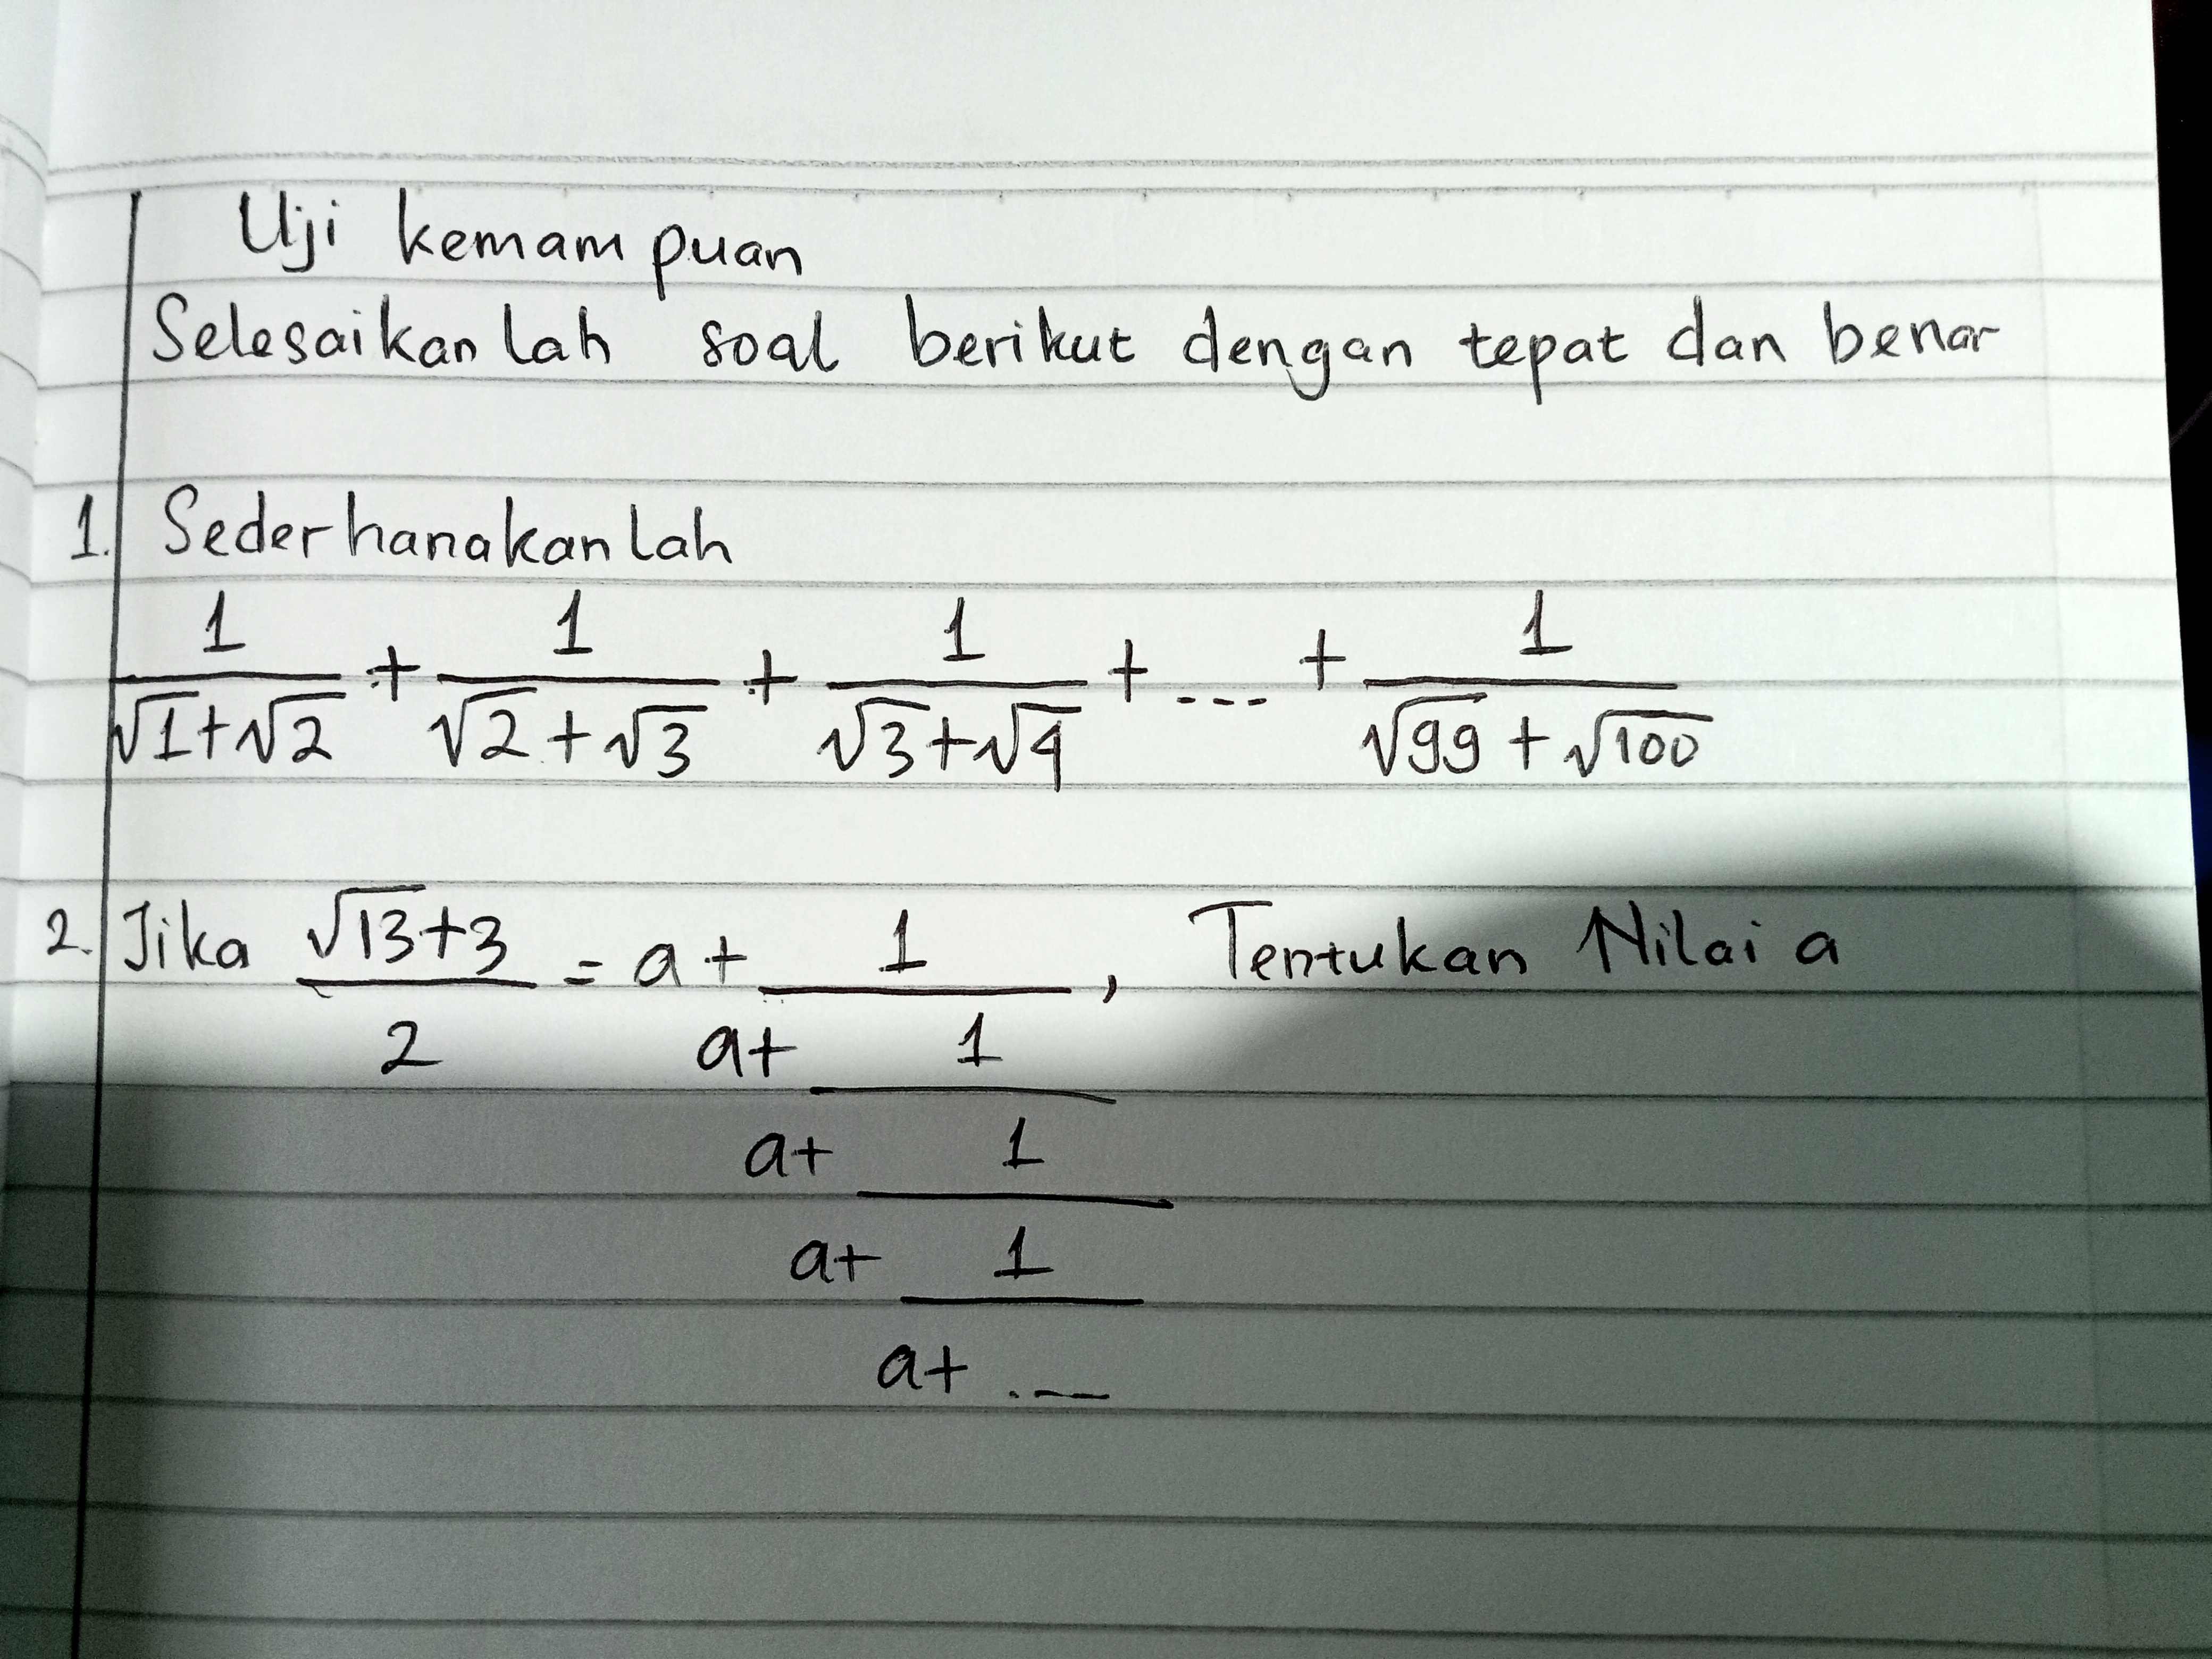 Uji kemampuan
Selesaikanlah soal berikut dengan tepat dan benar
1. Sederhanakanlah
1/(√1+√2) + 1/(√2+√3) + 1/(√3+√4) + ... + 1/(√99+√100)
2. Jika (√13+3)/2 = a + 1/(a+ 1/(a+ 1/(a+ 1/(a+ ...)))), Tentukan Nilai a